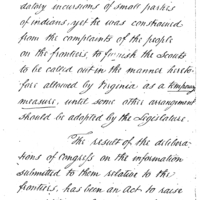 datory incursions of small parties
of indians, yet he was constrained
from the complaints of the people
on the frontiers, to furnish the scouts
to be called out in the manner hereto-
fore allowed by Virginia as a temporary
measure, until some other arrangement
should be adopted by the Legislature.
The result of the delibera-
tions of Congress on the information
submitted to them relative to the
frontiers, has been an act to raise